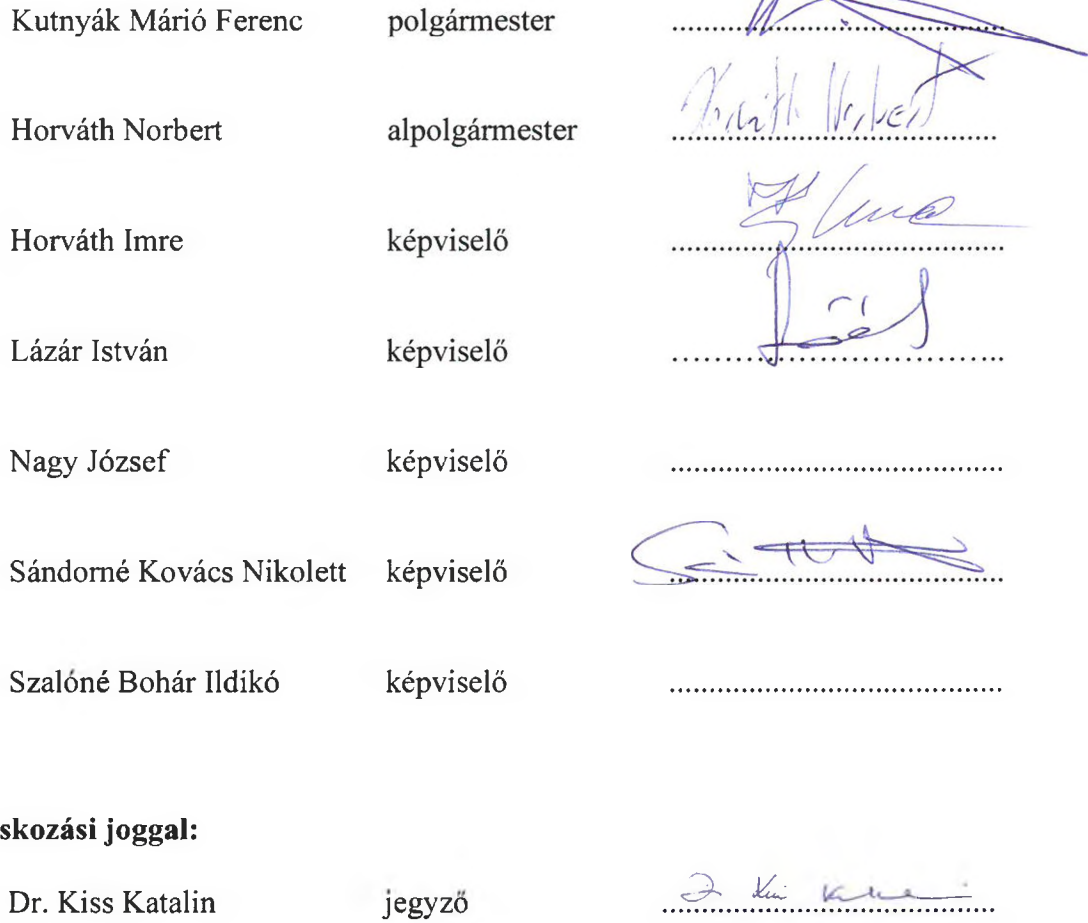 Kutnyák Márió Ferenc polgármester ........................................
Horváth Norbert alpolgármester Horváth Norbert ........................................
Horváth Imre képviselő ........................................
Lázár István képviselő ........................................
Nagy József képviselő ........................................
Sándorné Kovács Nikolett képviselő ........................................
Szalóné Bohár Ildikó képviselő ........................................
skozási joggal:
Dr. Kiss Katalin jegyző ........................................